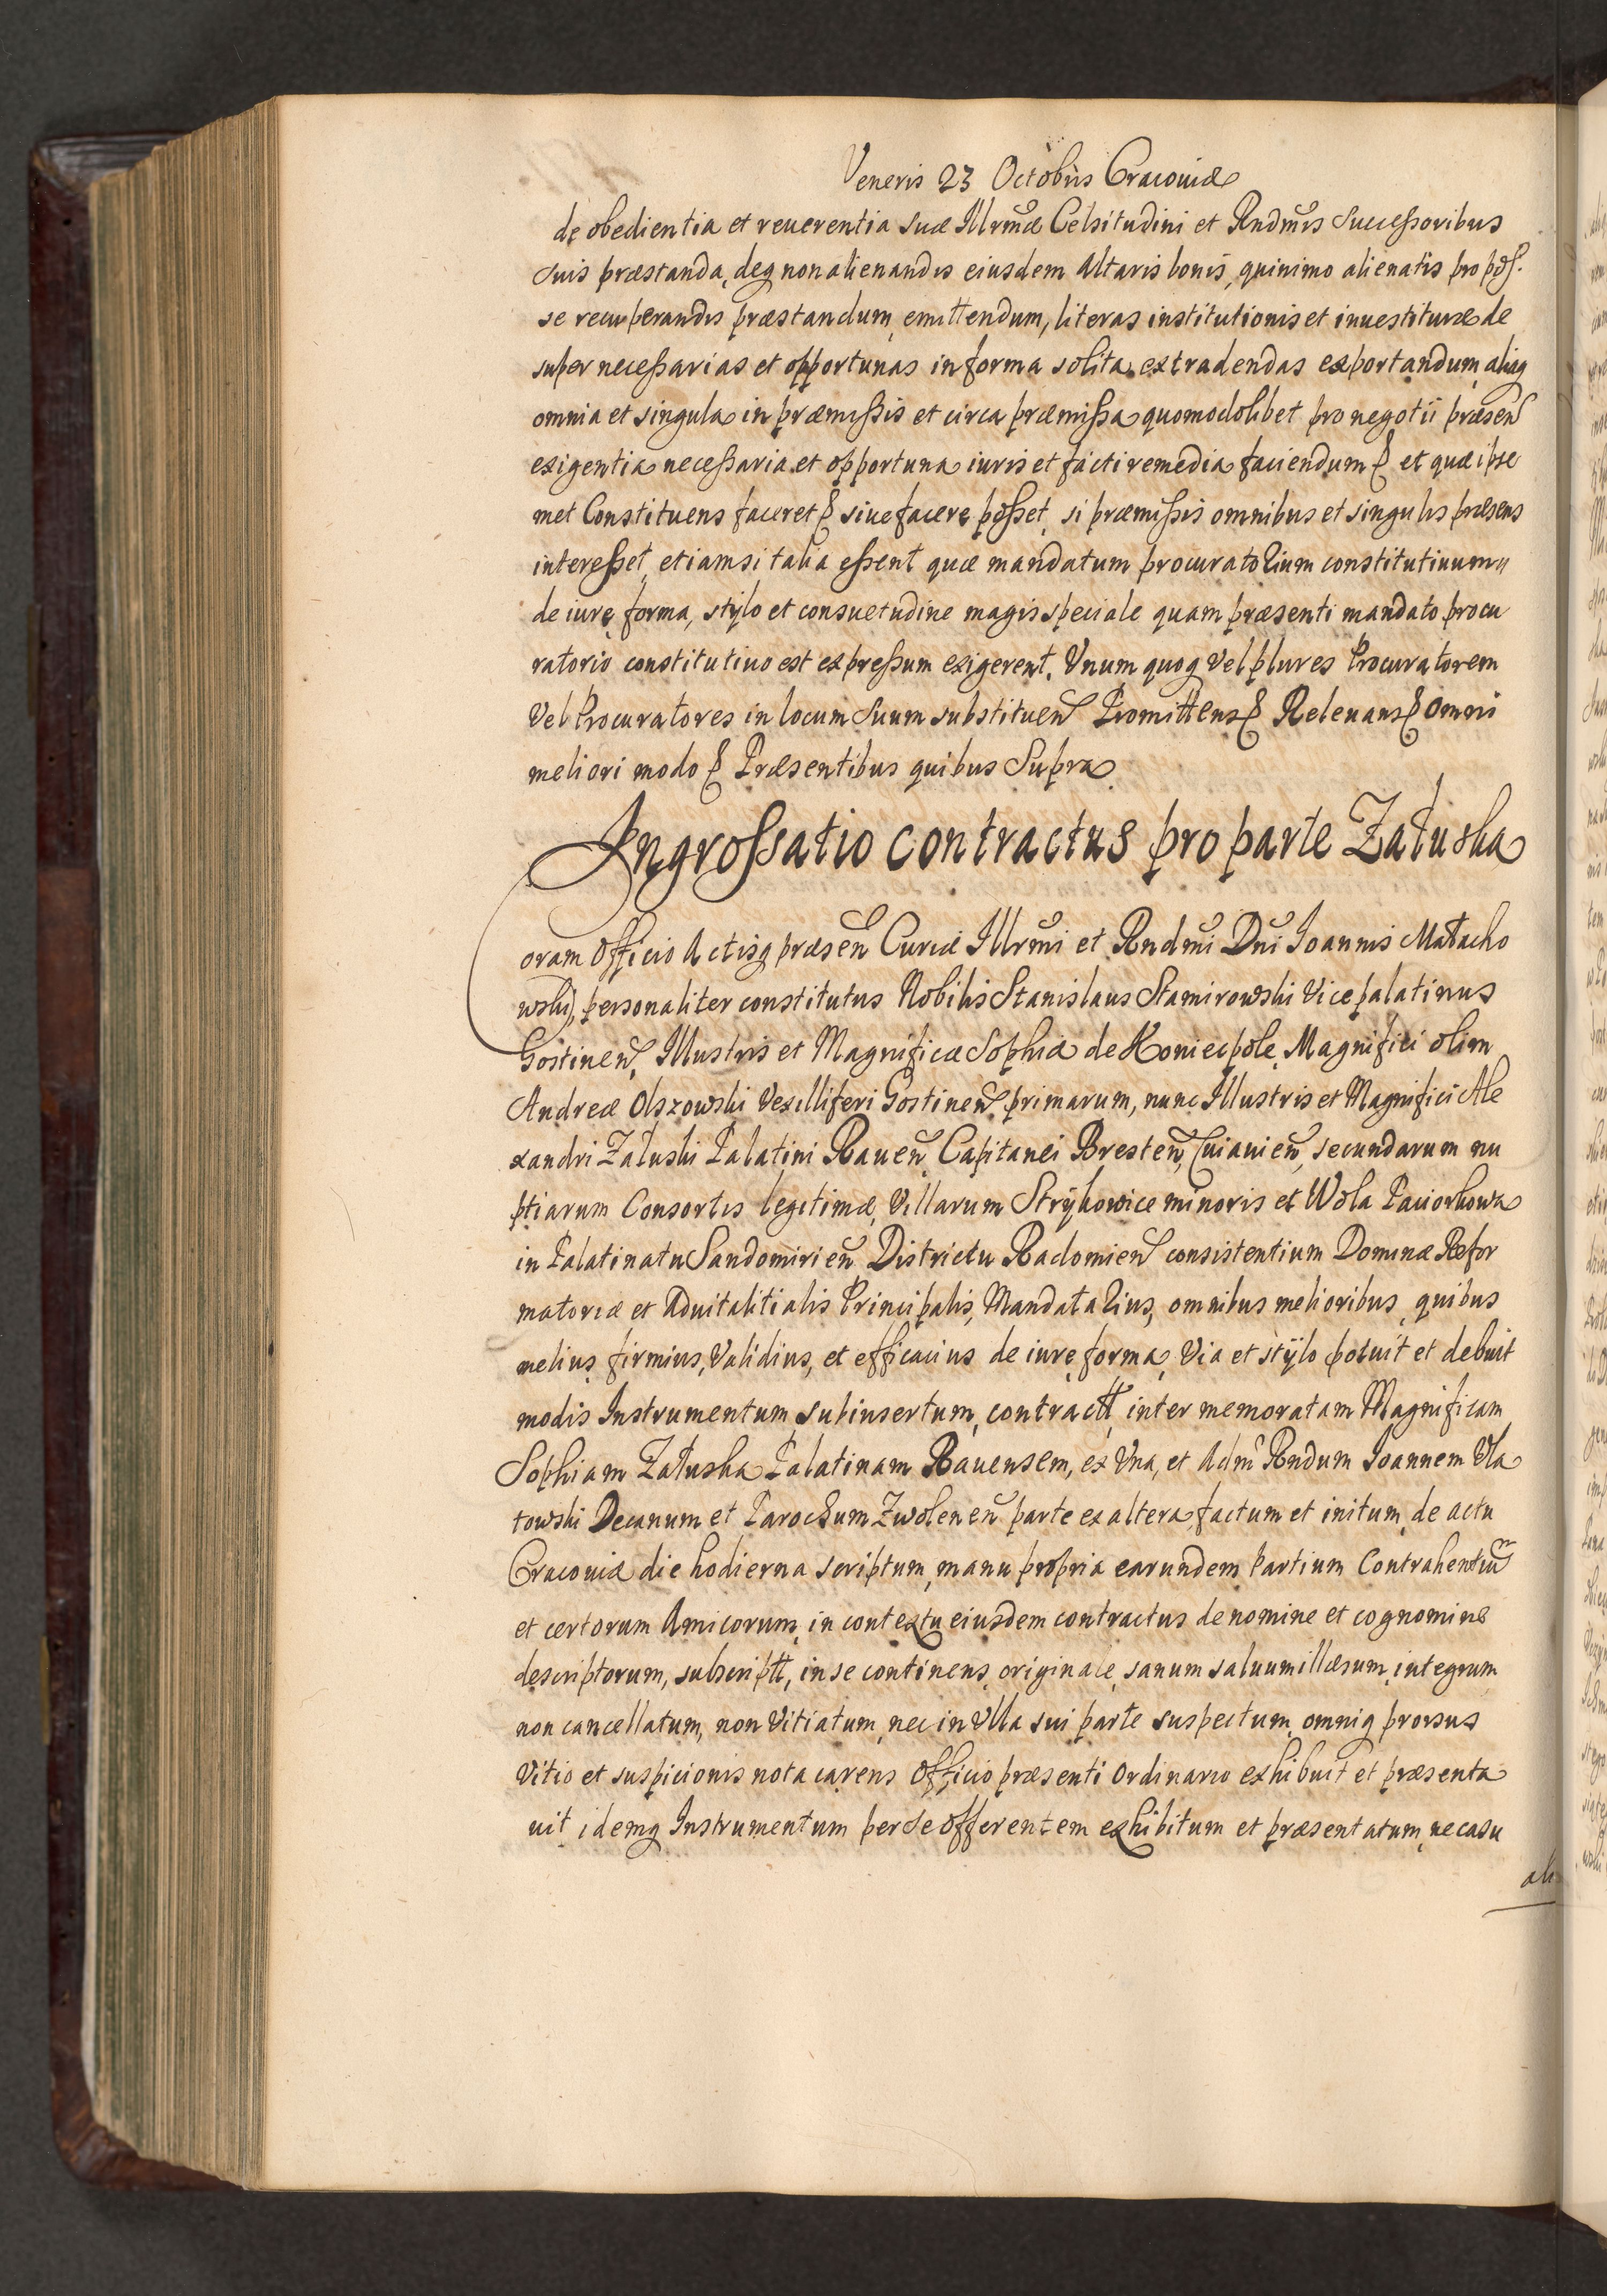 Veneris 23 Octobris Cracouiæ
de obedientia et reuerentia suæ Illrmæ Celsitudini et Rndmis Successoribus
suis præstanda, deq non alienandis eiusdem Altaris bonis, quinimo alienatis pro pos.
se recuperandis præstandum, emittendum, literas institutionis et inuestituræ de
super necessarias et opportunas in forma solita extradendas exportandum, aliaq
omnia et singula in præmissis et circa præmissa quomodolibet pro negotii præsen
exigentia necessaria et opportuna iuris et facti remedia faciendum & et quæ ipse
met Constituens faceret & siue facere posset, si præmissis omnibus et singulis præsens
interesset, etiamsi talia essent quæ mandatum procuratorium constitutiuum
de iure, forma, stylo et consuetudine magis speciale quam præsenti mandato procu
ratorio constitutiuo est expressum exigerent. Vnum quoq vel plures Procuratorem
vel Procuratores in locum suum substituen Promittens & Releuans & omni
meliori modo & Præsentibus quibus Supra
Ingrossatio contractus pro parte Załuska
Coram Officio Actisq præsen Curiæ Illrmi et Rndmi Dni Ioannis Małacho
wski, personaliter constitutus Nobilis Stanislaus Stamirowski Vicepalatinus
Gostinen, Illustris et Magnificæ Sophiæ de Koniecpole, Magnifici olim
Andreæ Olszowski Vexilliferi Gostinen primarum, nunc Illustris et Magnifici Ale
xandri Załuski Palatini Rauen, Capitanei Bresten, Cuiauien, secundarum nu
ptiarum Consortis legitimæ, Villarum Strykowice minoris et Wola Paciorkowa
in Palatinatu Sandomirien Districtu Radomien consistentium Dominæ Refor
matoriæ et aduitalitialis Principalis, Mandatarius, omnibus melioribus, quibus
melius, firmius, validius, et efficacius de iure, forma, via et stylo potuit et debuit
modis Instrumentum subinsertum, contractt, inter memoratam Magnificam
Sophiam Załuska Palatinam Rauensem, ex vna, et Adm Rndum Ioannem Vla
towski Decanum et Parochum Zwolenen parte ex altera, factum et initum, de actu
Cracouiæ die hodierna scriptum, manu propria earundem Partium Contrahentium
et certorum Amicorum, in contextu eiusdem contractus de nomine et cognomine
descriptorum, subscriptt, in se continens, originale, sanum saluum illæsum, integrum
non cancellatum, non vitiatum, nec in vlla sui parte suspectum, omniq prorsus
vitio et suspicionis nota carens Officio præsenti Ordinario exhibuit et præsenta
uit idemq Instrumentum per se offerentem exhibitum et præsentatum, ne casu
ali